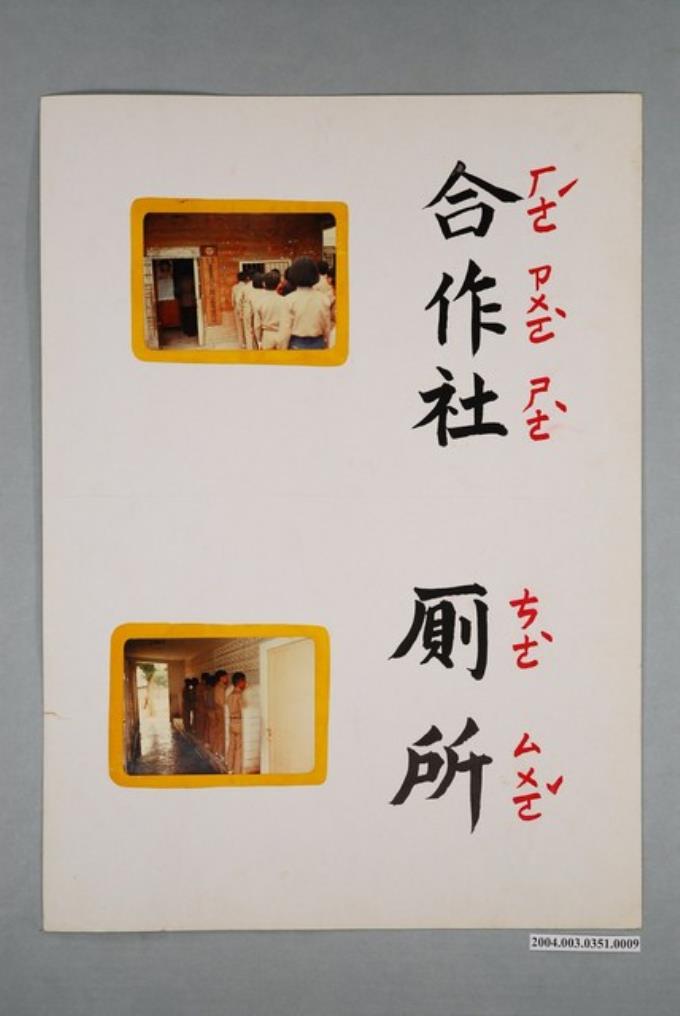 合作社
ㄏㄜˊ ㄗㄨㄛˋ ㄕㄜˋ
厠所
ㄘㄜˋ ㄙㄨㄛˇ
2004.003.0351.0009